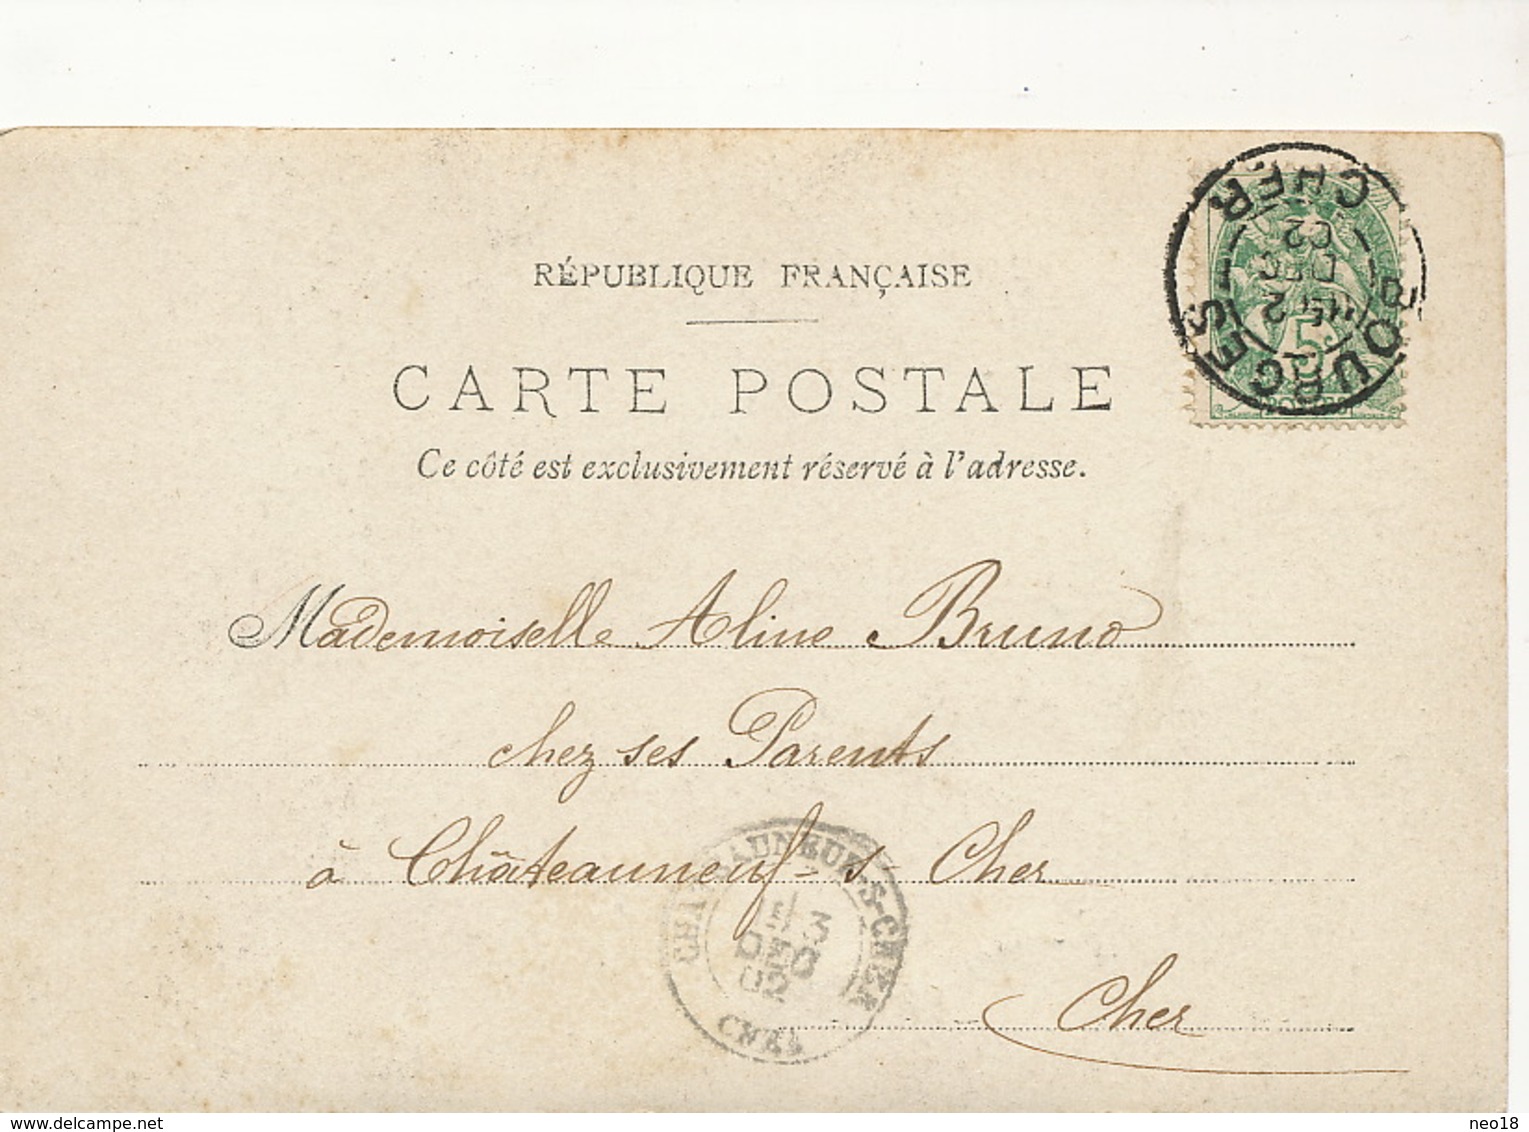 RÉPUBLIQUE FRANÇAISE
CARTE POSTALE
Ce côté est exclusivement réservé à l'adresse.
BOURGES
2
DEC
02
CHER
5c
POSTES
Mademoiselle Aline Bruno
chez ses Parents
à Châteauneuf-s-Cher
Cher
CHATEAUNEUF-S-CHER
3
DEC
02
CHER
delcampe.net
neo18